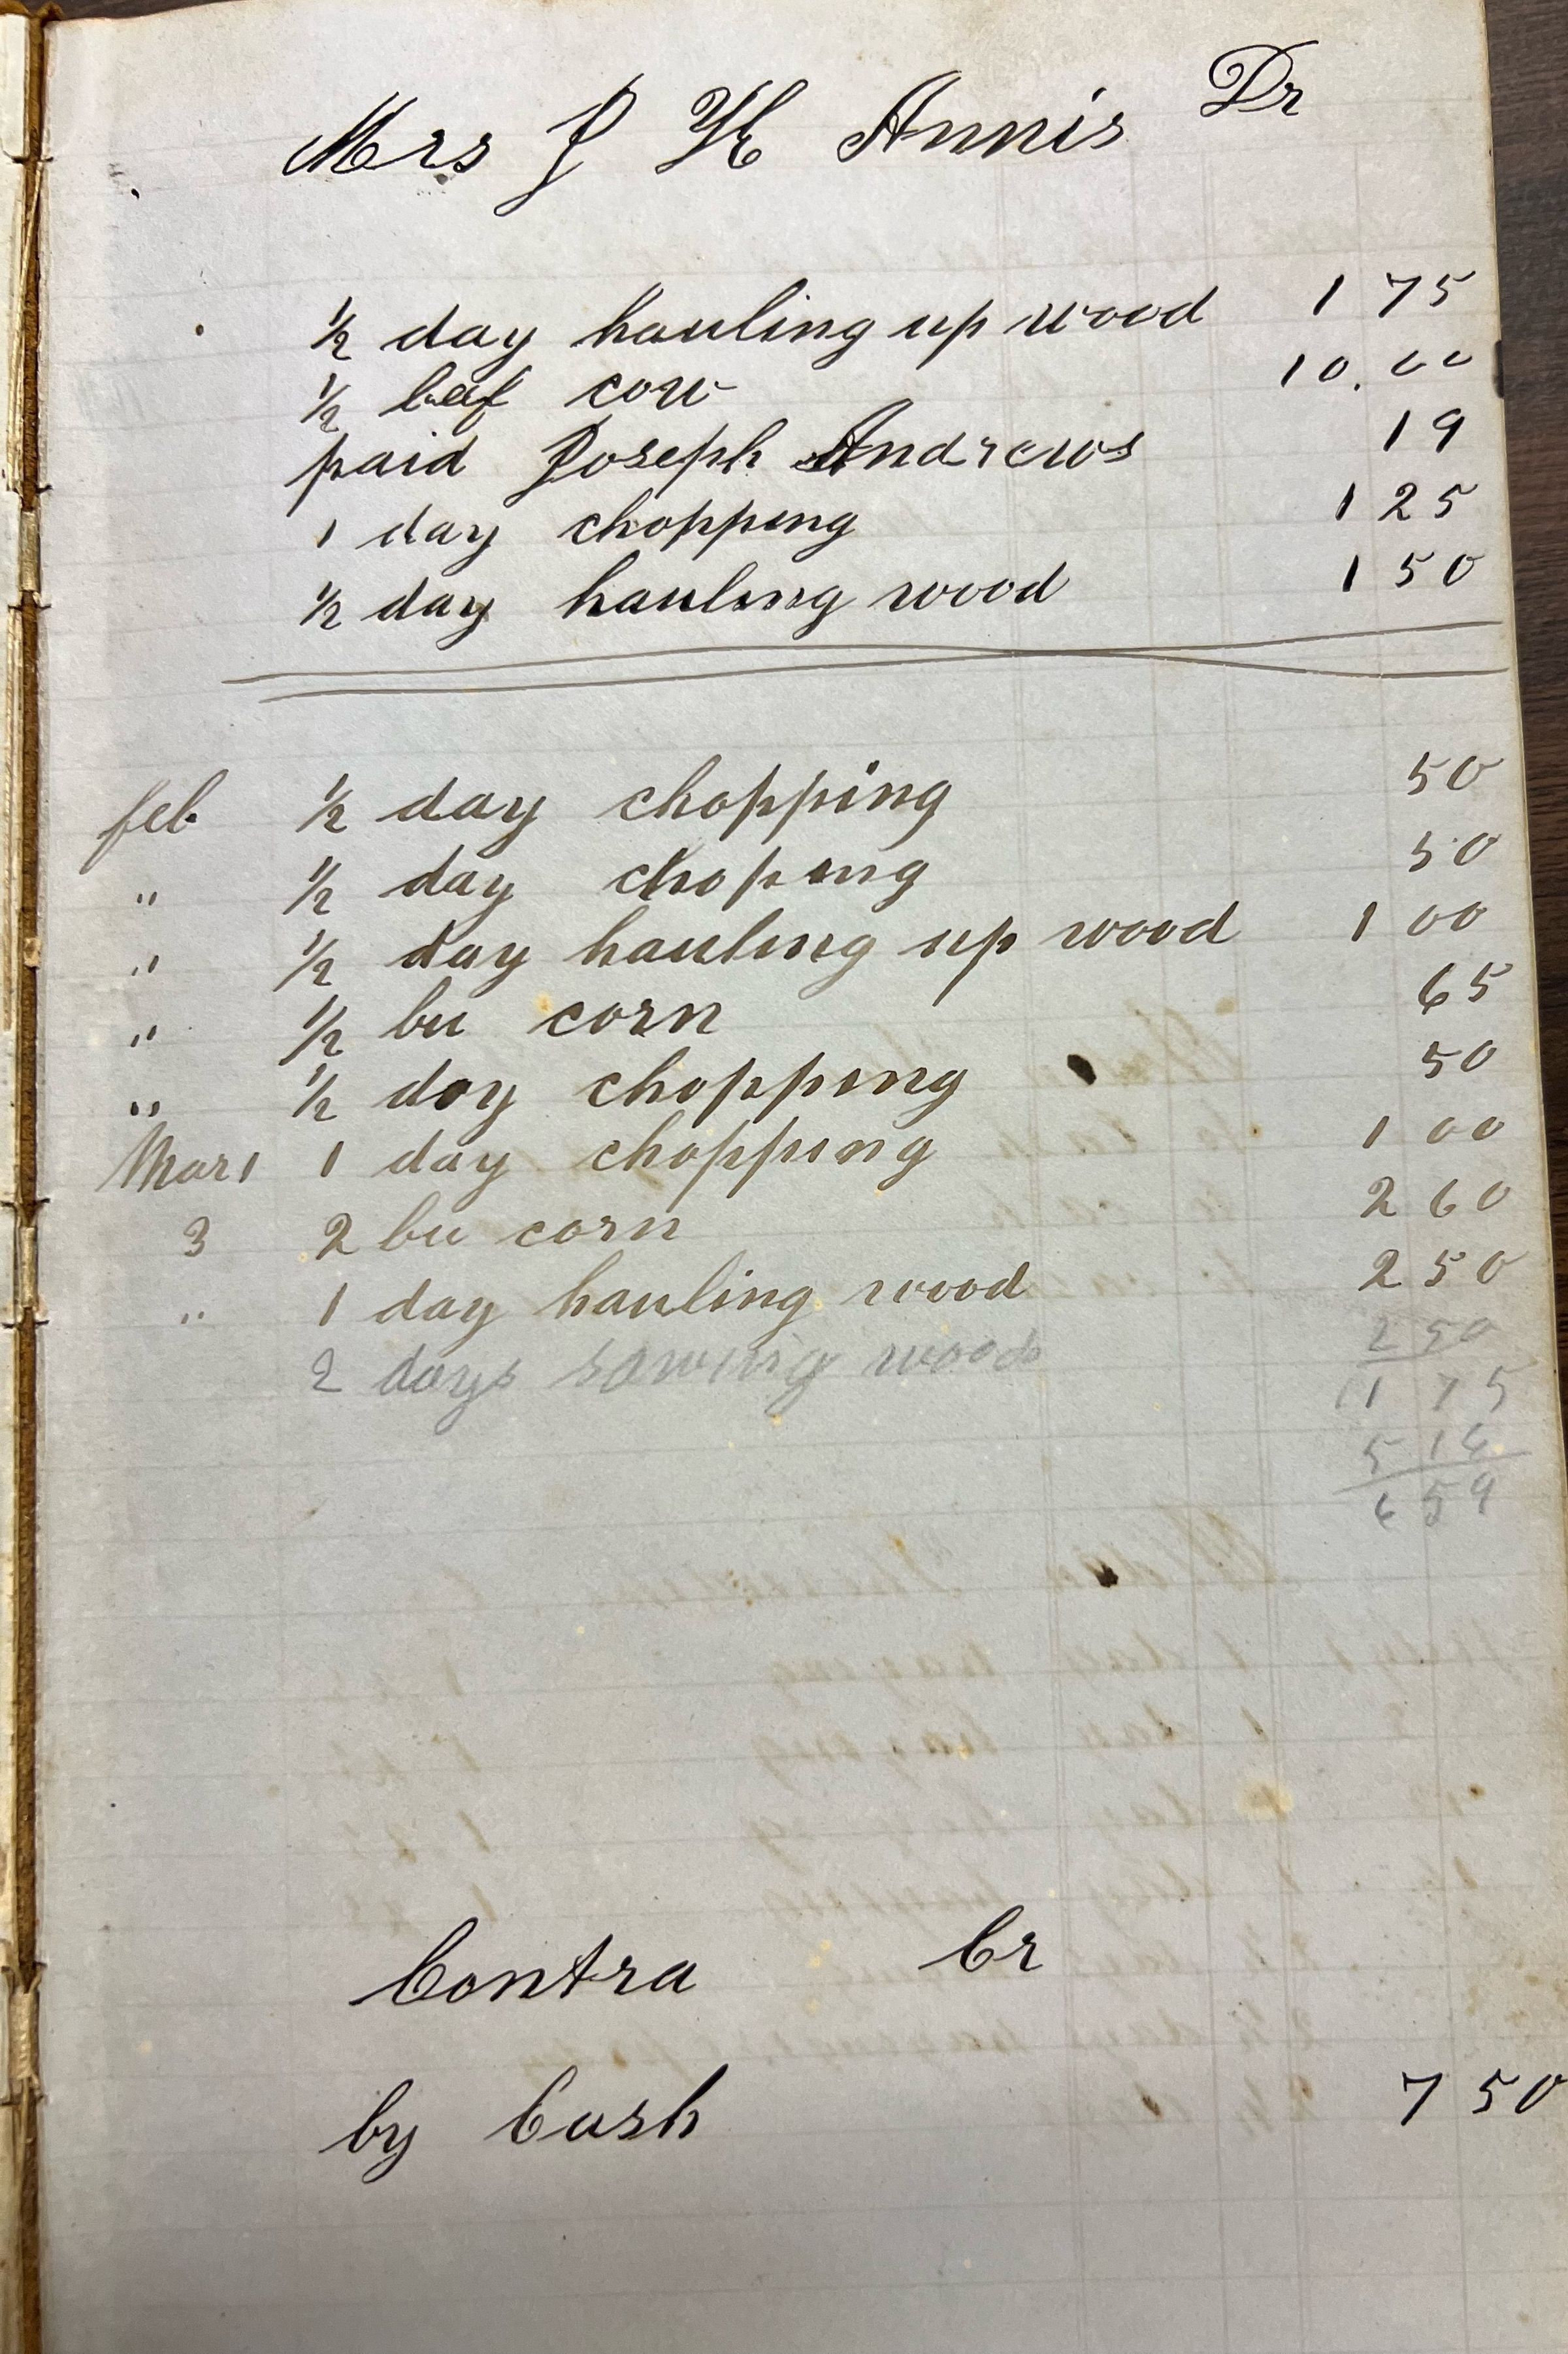 Mrs J H Annis Dr
1/2 day hauling up wood 1 75
1/2 beef cow 10.00
paid Joseph Andrews 19
1 day chopping 1 25
1/2 day hauling wood 1 50
feb 1/2 day chopping 50
" 1/2 day choping 50
" 1/2 day hauling up wood 1 00
" 1/2 bu corn 65
" 1/2 day chopping 50
Mar 1 1 day chopping 1 00
3 2 bu corn 2 60
" 1 day hauling wood 2 50
2 days sawing wood 2 50
11 75
5 16
6 59
Contra Cr
by Cash 7 50